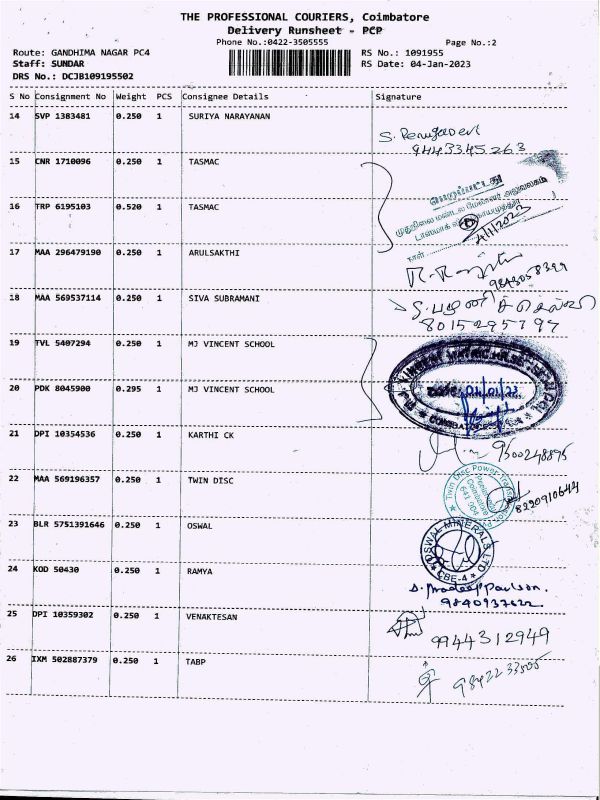 THE PROFESSIONAL COURIERS, Coimbatore
Delivery Runsheet - PCP
Phone No.:0422-3505555 Page No.:2
Route: GANDHIMA NAGAR PC4 RS No.: 1091955
Staff: SUNDAR RS Date: 04-Jan-2023
DRS No.: DCJB109195502
S No Consignment No Weight PCS Consignee Details Signature
14 SVP 1383481 0.250 1 SURIYA NARAYANAN
9443345263
15 CNR 1710096 0.250 1 TASMAC
பெறப்பட்டது
16 TRP 6195103 0.520 1 TASMAC
4/1/2023
நாள்
17 MAA 296479190 0.250 1 ARULSAKTHI
18 MAA 569537114 0.250 1 SIVA SUBRAMANI
8015295797
19 TVL 5407294 0.250 1 MJ VINCENT SCHOOL
20 PDK 8045900 0.295 1 MJ VINCENT SCHOOL
21 DPI 10354536 0.250 1 KARTHI CK
9500248895
22 MAA 569196357 0.250 1 TWIN DISC
Twin Disc Power
Coimbatore
641 004
8220910644
23 BLR 5751391646 0.250 1 OSWAL
OSWAL MINERALS LTD
CBE-4
24 KOD 50430 0.250 1 RAMYA
9840937622
25 DPI 10359302 0.250 1 VENAKTESAN
9944312949
26 IXM 502887379 0.250 1 TABP
9842233505